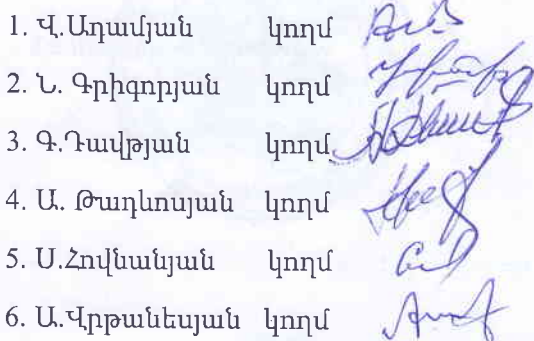 1. Վ.Ադամյան կողմ
2. Ն. Գրիգորյան կողմ
3. Գ.Դավթյան կողմ
4. Ա. Թադևոսյան կողմ
5. Ս.Հովնանյան կողմ
6. Ա.Վրթանեսյան կողմ